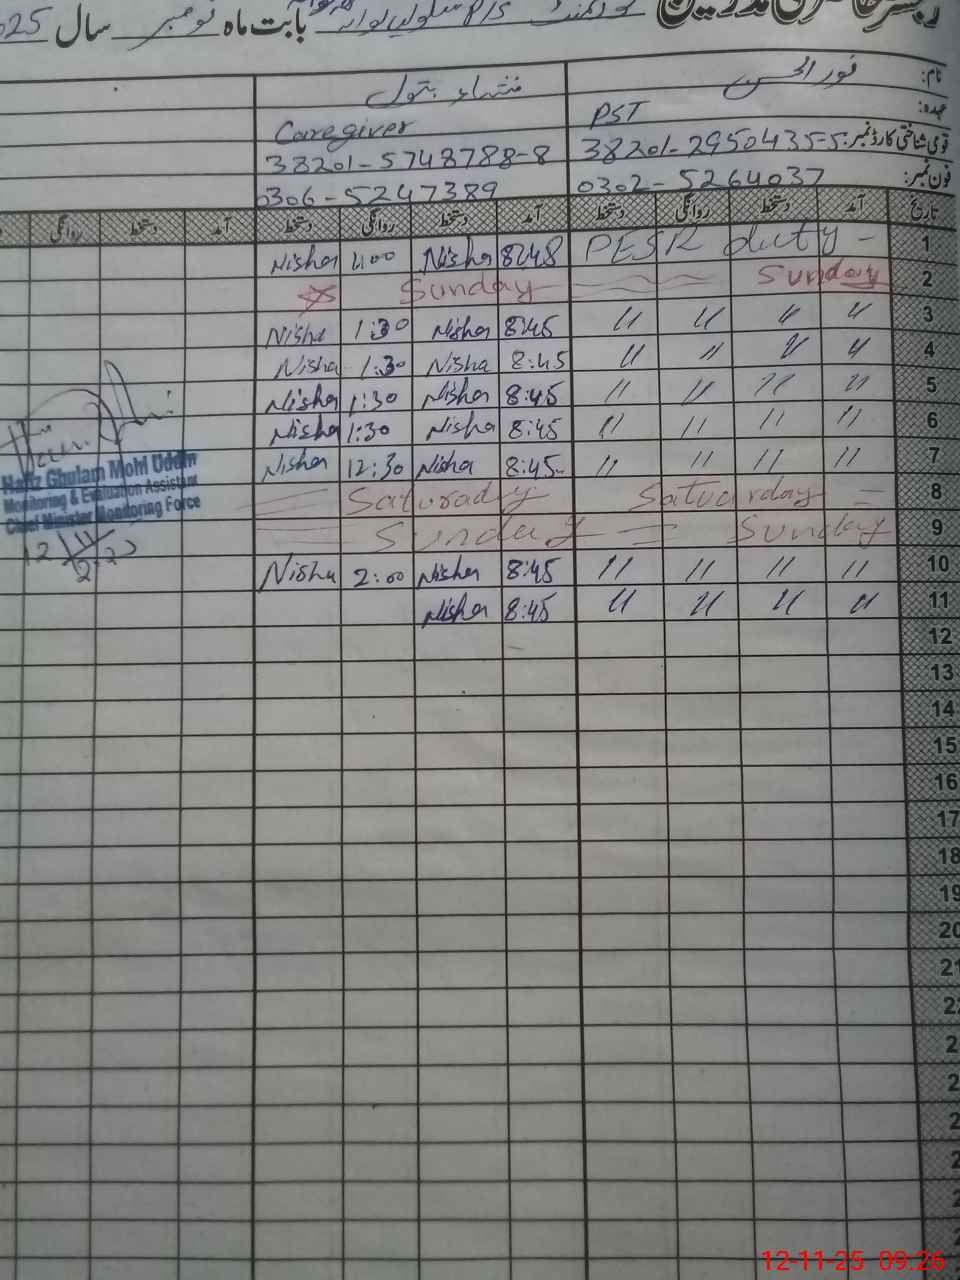 بابت ماہ نومبر سال 2025
نام: نور الحسن منشاء بتول
عہدہ: PST Caregiver
قومی شناختی کارڈ نمبر: 38201-2950435-5 38201-5748788-8
فون نمبر: 0302-5264037 0306-5247389
تاریخ آمد دستخط روانگی دستخط آمد دستخط روانگی دستخط آمد دستخط روانگی
1 PESR duty - 8:48 Nisha Nisha
2 Sunday Sunday
3 〃 〃 〃 〃 8:45 Nisha 1:30 Nisha
4 〃 〃 〃 〃 8:45 Nisha 1:30 Nisha
5 〃 〃 〃 〃 8:45 Nisha 1:30 Nisha
6 〃 〃 〃 〃 8:45 Nisha 1:30 Nisha
7 〃 〃 〃 〃 8:45 Nisha 12:30 Nisha
8 Satuarday Saturady
9 Sunday Sunday
10 〃 〃 〃 〃 8:45 Nisha 2:00 Nisha
11 〃 〃 〃 〃 8:45 Nisha
Hafiz Ghulam Mohi Uddin
Monitoring & Evaluation Assistant
Chief Minister Monitoring Force
12
13
14
15
16
17
18
19
20
21
12-11-25 09:26